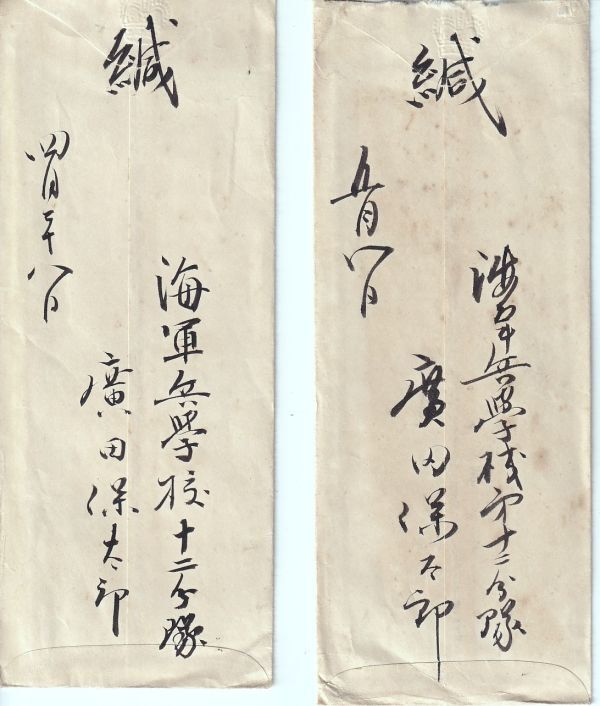 緘
四月二十八日
海軍兵學校十二分隊
廣田保太郎
緘
五月八日
海軍兵學校第十二分隊
廣田保太郎